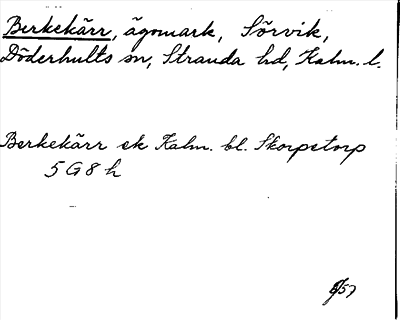 Berkekärr, ägomark, Sörvik,
Döderhults sn, Stranda hd, Kalm. l.
Berkekärr ek Kalm. bl. Skorpetorp
5 G 8 h